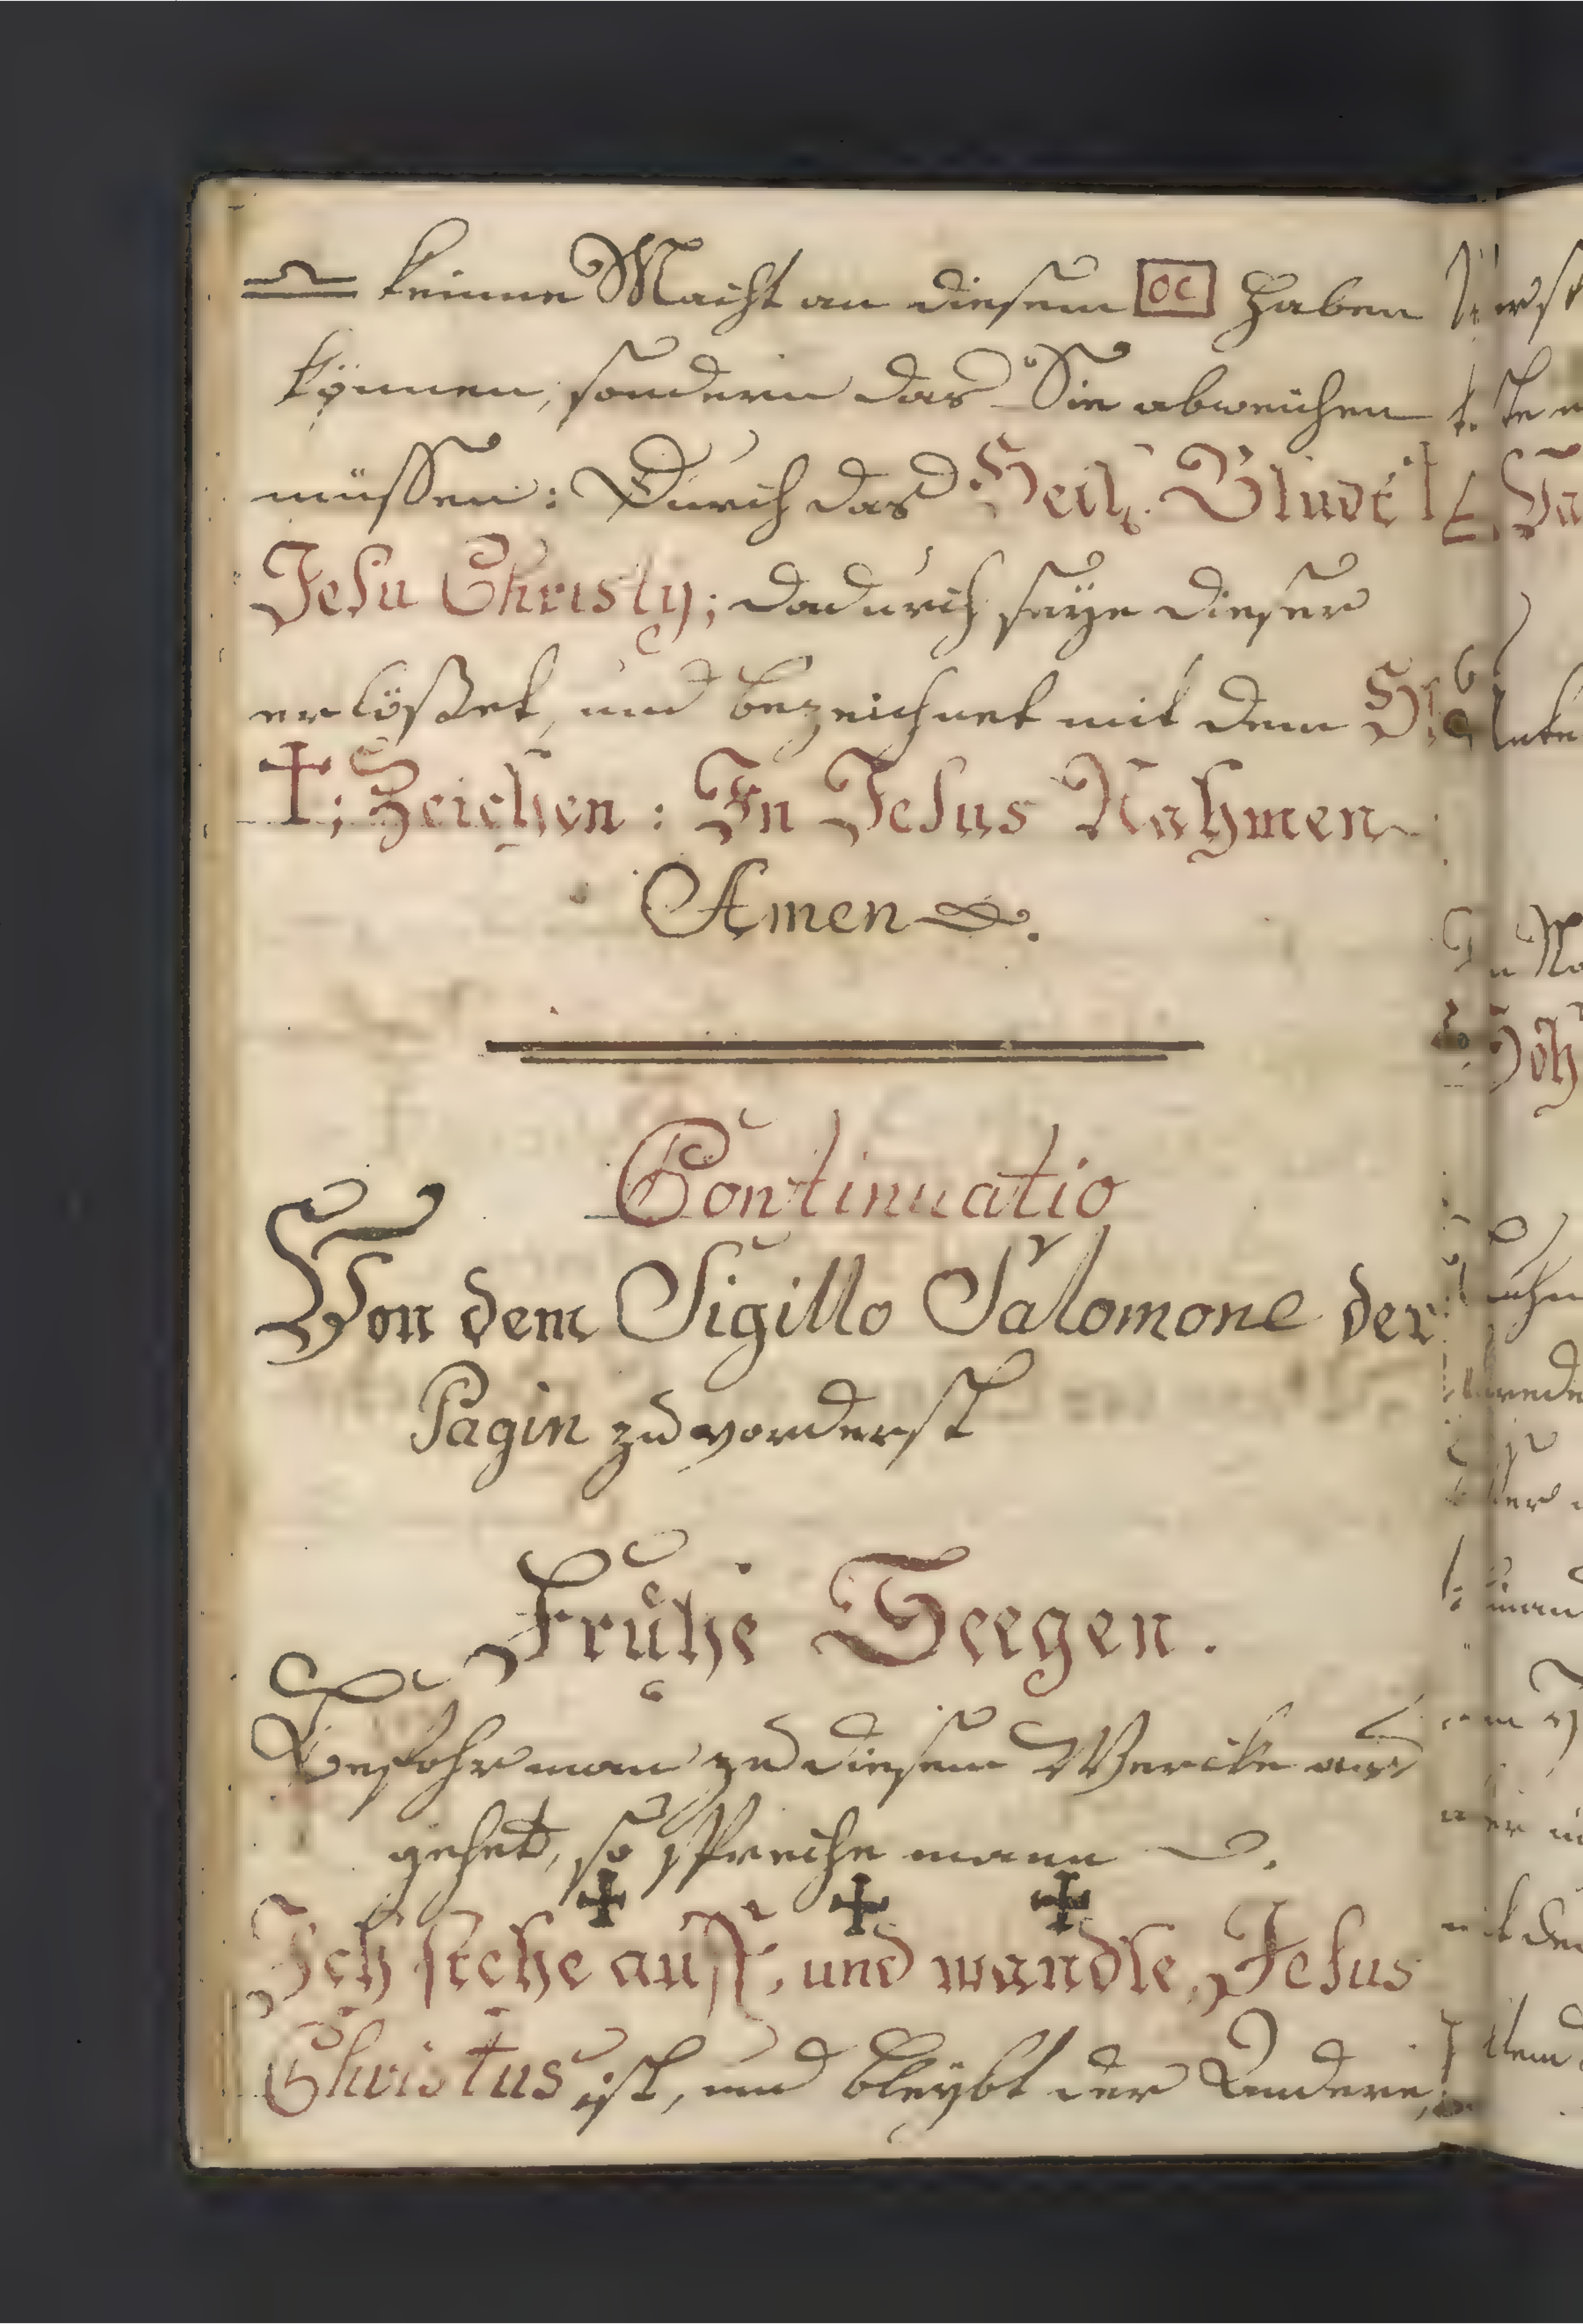 keinne Macht an diesem OC haben
können, sondern das Sie abweichen
müssen: Durch das Heil. Bludt
Jesu Christy; dadurch seÿe dieser
erlößet, und bezeichnet mit dem Hl
✝; Zeichen: In Jesus Nahmen
Amen.
Continuatio
Von dem Sigillo Salomone der
Pagin zu vorderst
Frühe Seegen.
Besohr man zu diesem Wercke aus
gehet, so spreche mann
✠ ✠ ✠
Ich stehe auff, und wandle, Jesus
Christus ist, und bleÿbt der Andere,